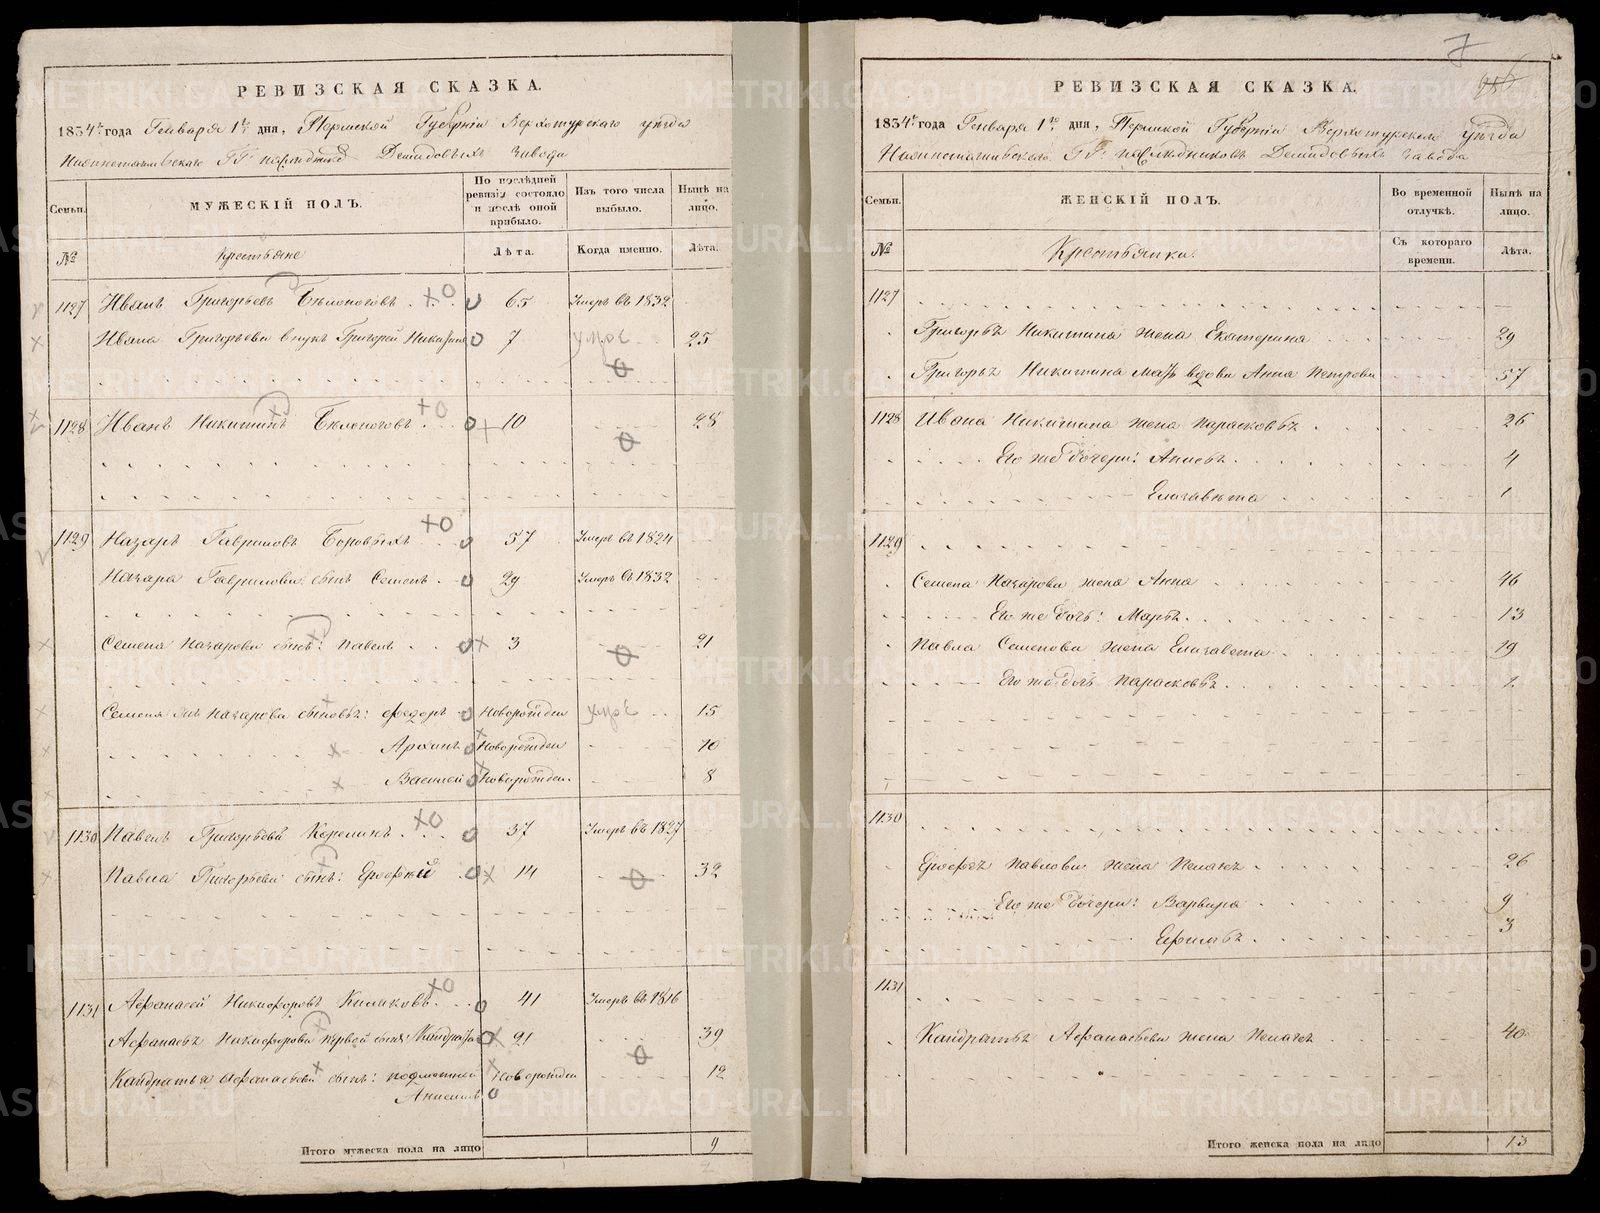 РЕВИЗСКАЯ СКАЗКА.
1834го года Генваря 1го дня, Пермской Губернiи Верхотурскаго уѣзда
ГГ: наслѣдниковъ Демидовыхъ завода
Семьи.
МУЖЕСКIЙ ПОЛЪ.
По послѣдней ревизiи состояло и послѣ оной прибыло.
Изъ того числа выбыло.
Нынѣ на лицо.
№
Крестьяне
Лѣта.
Когда именно.
Лѣта.
1127 Иванъ Григорьевъ Бѣлоноговъ 65 Умеръ въ 1832
Ивана Григорьева внукъ Григорей Никитинъ 7 25
1128 Иванъ Никитинъ Бѣлоноговъ 10 28
1129 Назаръ Гавриловъ Боровыхъ 57 Умеръ въ 1824
Назара Гаврилова сынъ Семенъ 29 Умеръ въ 1832
Семена Назарова сынъ: Павелъ 3 21
Семена же Назарова сыновья: Федоръ Новорожден 15
Архипъ Новорожден 10
Василей Новорожден. 8
1130 Павелъ Григорьевъ Корелинъ 37 Умеръ въ 1827
Павла Григорьева сынъ: Ерофей 14 32
1131 Афанасей Никифоровъ 41 Умеръ въ 1816
Афанасья Никифорова первой сынъ: Кандратей 21 39
Кандратья Афанасьева сынъ: Новорожден 12
Анисимъ
Итого мужеска пола на лицо 9
7
РЕВИЗСКАЯ СКАЗКА.
1834го года Генваря 1го дня, Пермской Губернiи Верхотурскаго уѣзда
ГГ: наслѣдниковъ Демидовыхъ завода
Семьи.
ЖЕНСКIЙ ПОЛЪ.
Во временной отлучкѣ.
Нынѣ на лицо.
№
Крестьянки.
Съ котораго времени.
Лѣта.
1127
Григорья Никитина жена Екатерина 29
Григорья Никитина мать вдова Анна Петрова 57
1128 Ивана Никитина жена Парасковья 26
Его же дочери: Анисья 4
Елизавета 1
1129
Семена Назарова жена Анна 46
Его же дочь: Марья 13
Павла Семенова жена Елизавета 19
Его же дочь Парасковья 1
1130
Ерофея Павлова жена Пелагея 26
Его же дочери: Варвара 9
3
1131
Кандратья Афанасьева жена Пелагея 40
Итого женска пола на лицо 13
METRIKI.GASO-URAL.RU